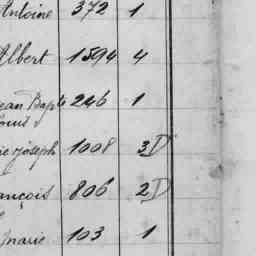 Antoine 372 1
Albert 1594 4
Jean Bapte 246 1
Louis
Joseph 1008 3D
François 806 2D
Marie 103 1